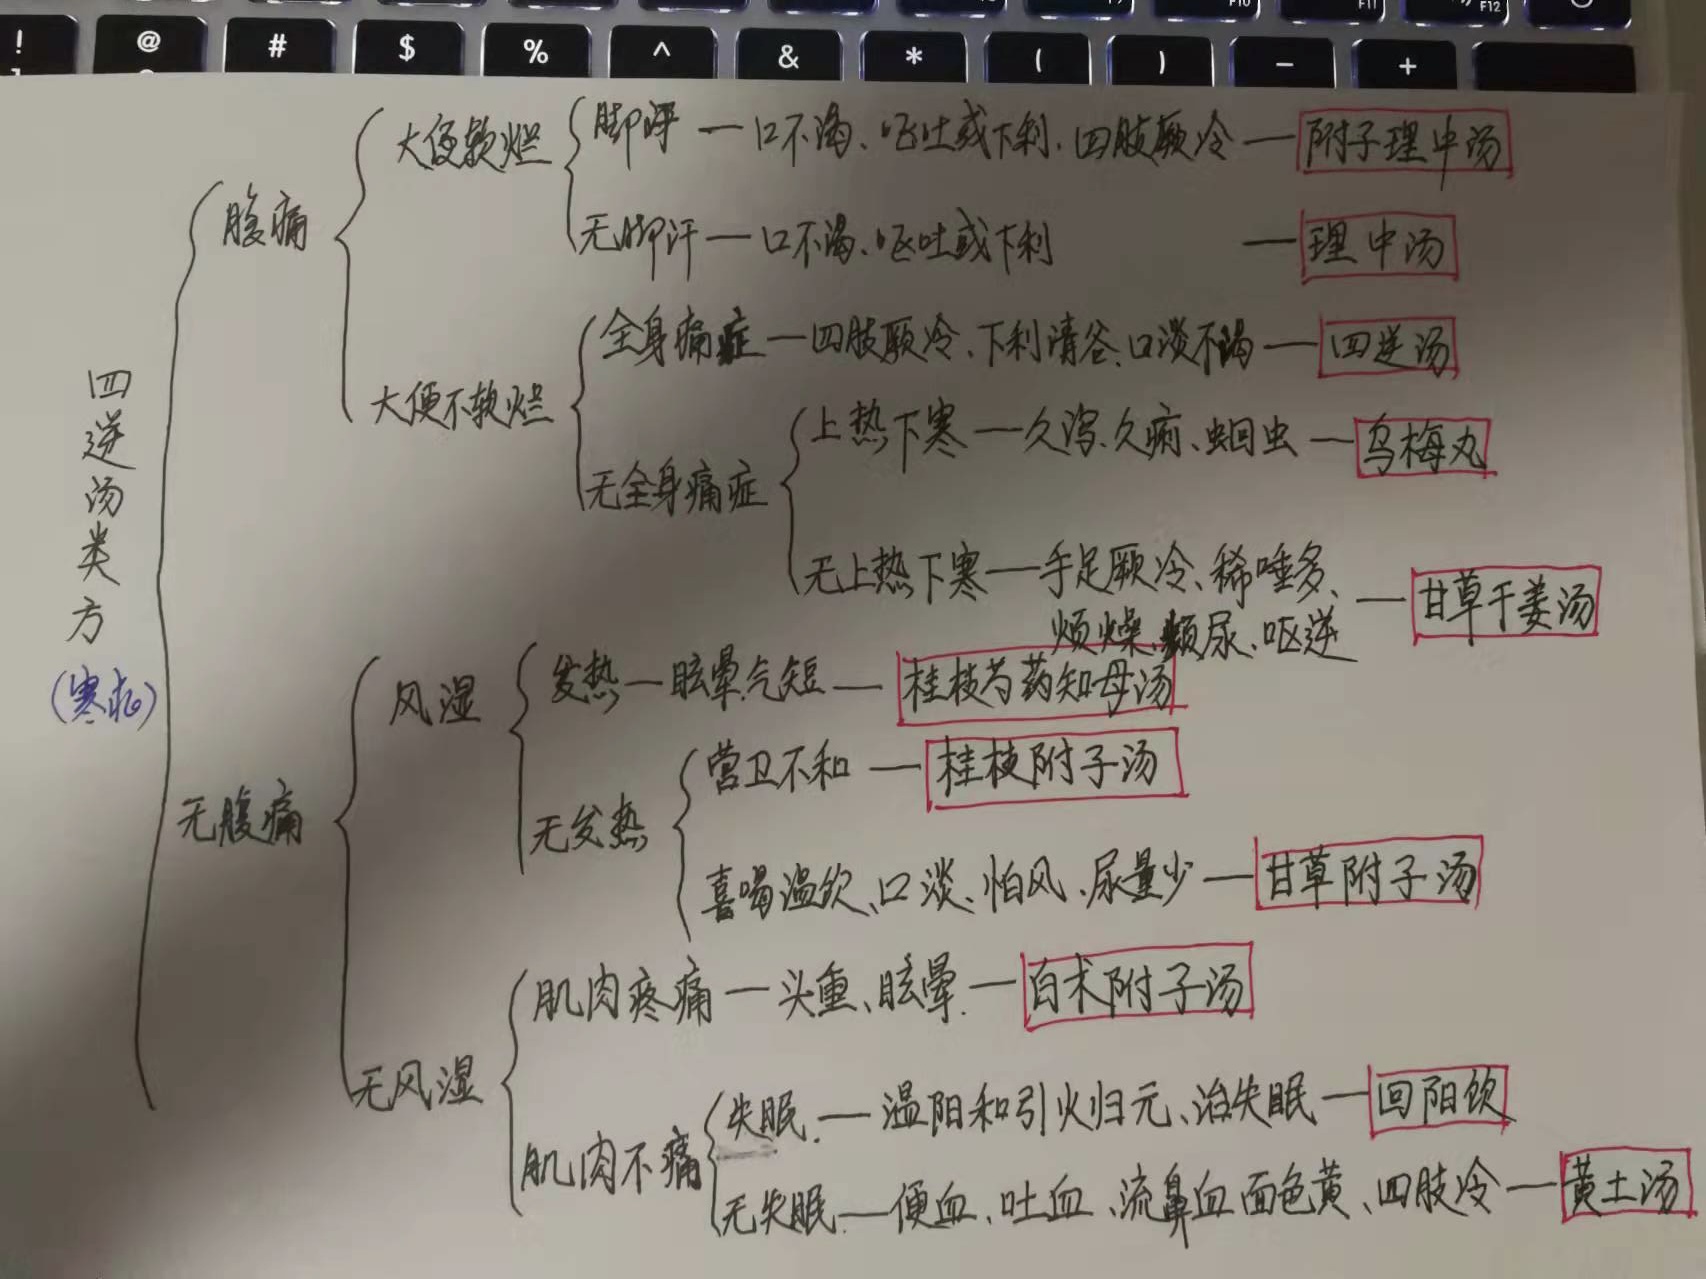 ! @ # $ % ^ & * ( ) - +
F10 F11 F12
四逆汤类方
(寒札)
腹痛
大便软烂
脚浮 — 口不渴、呕吐或下利、四肢厥冷 — 附子理中汤
无脚汗 — 口不渴、呕吐或下利 — 理中汤
大便不软烂
全身痛症 — 四肢厥冷、下利清谷、口淡不渴 — 四逆汤
无全身痛症
上热下寒 — 久泻、久痢、蛔回虫 — 乌梅丸
无上热下寒 — 手足厥冷、稀唾多、
烦燥、频尿、呕逆 — 甘草干姜汤
无腹痛
风湿
发热 — 眩晕、气短 — 桂枝芍药知母汤
无发热
营卫不和 — 桂枝附子汤
喜喝温饮、口淡、怕风、尿量少 — 甘草附子汤
无风湿
肌肉疼痛 — 头重、眩晕 — 白术附子汤
肌肉不痛
失眠 — 温阳和引火归元、治失眠 — 回阳饮
无失眠 — 便血、吐血、流鼻血面色黄、四肢冷 — 黄土汤